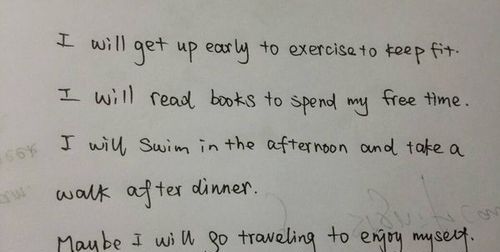 I will get up early to exercise to keep fit.
I will read books to spend my free time.
I will swim in the afternoon and take a
walk after dinner.
Maybe I will go traveling to enjoy myself.